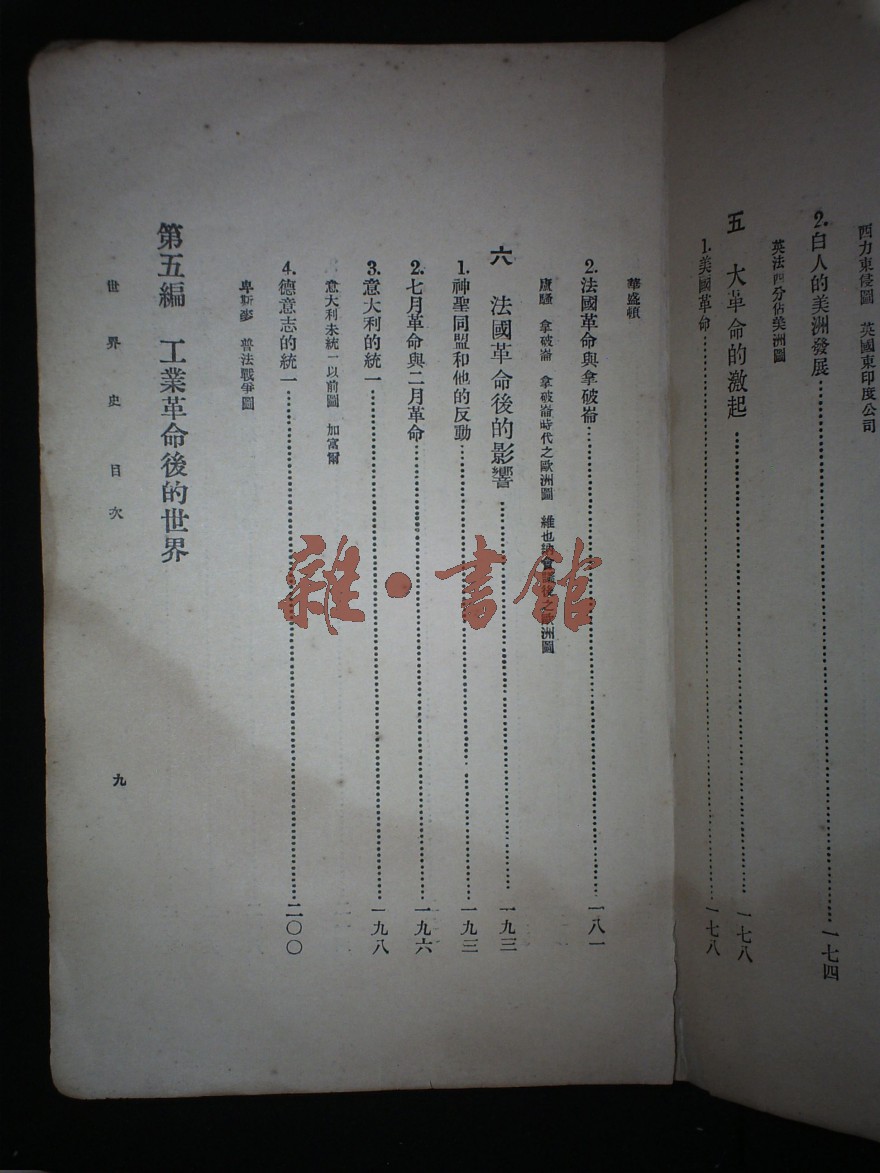 西力東侵圖 英國東印度公司
2. 白人的美洲發展……一七四
英法西分佔美洲圖
五 大革命的激起……一七八
1. 美國革命……一七八
華盛頓
2. 法國革命與拿破崙……一八一
盧騷 拿破崙 拿破崙時代之歐洲圖 維也納會議後之歐洲圖
六 法國革命後的影響……一九三
1. 神聖同盟和他的反動……一九三
2. 七月革命與二月革命……一九六
3. 意大利的統一……一九八
意大利未統一以前圖 加富爾
4. 德意志的統一……二〇〇
卑斯麥 普法戰爭圖
第五編 工業革命後的世界
世界史目次 九
雜·書館